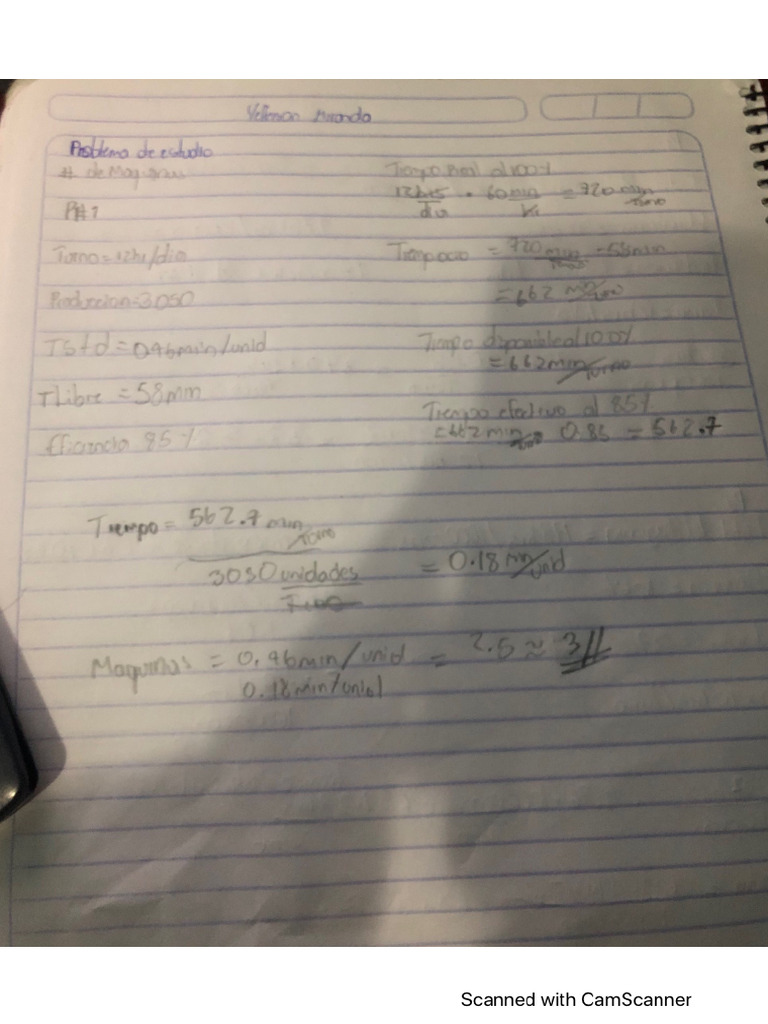 Miranda
Problema de estudio
# de Maquinas
P#1
Turno = 12hr/dia
Produccion = 3.050
TStd = 0.46min/unid
TLibre = 58min
Eficiencia 85%
Tiempo Real al 100%
12hrs/dia * 60min/hr = 720 min/Turno
Tiempo = 720 min/Turno - 58min
= 662 min/Turno
Tiempo disponible al 100%
= 662min/Turno
Tiempo efectivo al 85%
= 662 min/Turno 0.85 = 562.7
Tiempo = 562.7 min/Turno
3050 unidades/Turno = 0.18 min/unid
Maquinas = 0.46min/unid = 2.5 ≈ 3//
0.18 min/unid
Scanned with CamScanner